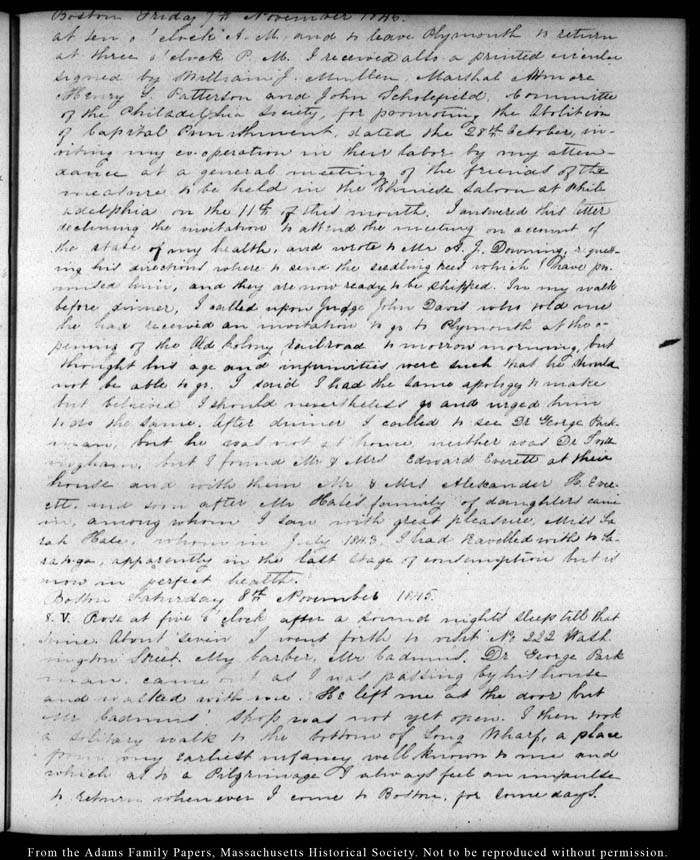 Boston Friday 7th November 1845.
at ten o'clock A. M. and to leave Plymouth to return
at three o'clock P. M. I received also a printed circular
signed by William J. Mullen, Marshal Attmore
Henry S. Patterson and John Scholefield, Committee
of the Philadelphia Society, for promoting the Abolition
of Capital Punishment, dated the 28th October, in-
viting my co-operation in their labor by my atten-
dance at a general meeting of the friends of the
measure to be held in the Chinese Saloon at Phil
adelphia on the 11th of this month. I answered this letter
declining the invitation to attend the meeting on account of
the state of my health, and wrote to Mr A. J. Downing, reques-
ting his directions where to send the seedling trees which I have pro
mised him, and they are now ready to be shipped. In my walk
before dinner, I called upon Judge John Davis who told me
he had received an invitation to go to Plymouth at the o-
pening of the Old Colony railroad to morrow morning, but
thought his age and infirmities were such that he should
not be able to go. I said I had the same apology to make
but believed I should nevertheless go and urged him
to do the same. After dinner I called to see Dr George Park-
man, but he was not at home, neither was Dr Froth
ingham, but I found Mr & Mrs Edward Everett at their
house and with them Mr & Mrs Alexander H. Ever-
ett. and soon after Mr Hale's family of daughters came
in, among whom I saw with great pleasure, Miss Sa
rah Hale, whom in July 1843 I had travelled with to Sa-
ratoga, apparently in the last stage of consumption but is
now in perfect health.
Boston Saturday 8th November 1845.
5. V. Rose at five o'clock after a sound night's sleep till that
time. About seven I went forth to visit No 222 Wash
ington Street, My barber, Mr Cadmus. Dr George Park
man, came out as I was passing by his house
and walked with me. He left me at the door but
Mr Cadmus' shop was not yet open. I then took
a solitary walk to the bottom of Long Wharf, a place
from my earliest infancy well known to me and
which as to a Pilgrimage I always feel an impulse
to return whenever I come to Boston, for some days.
From the Adams Family Papers, Massachusetts Historical Society. Not to be reproduced without permission.